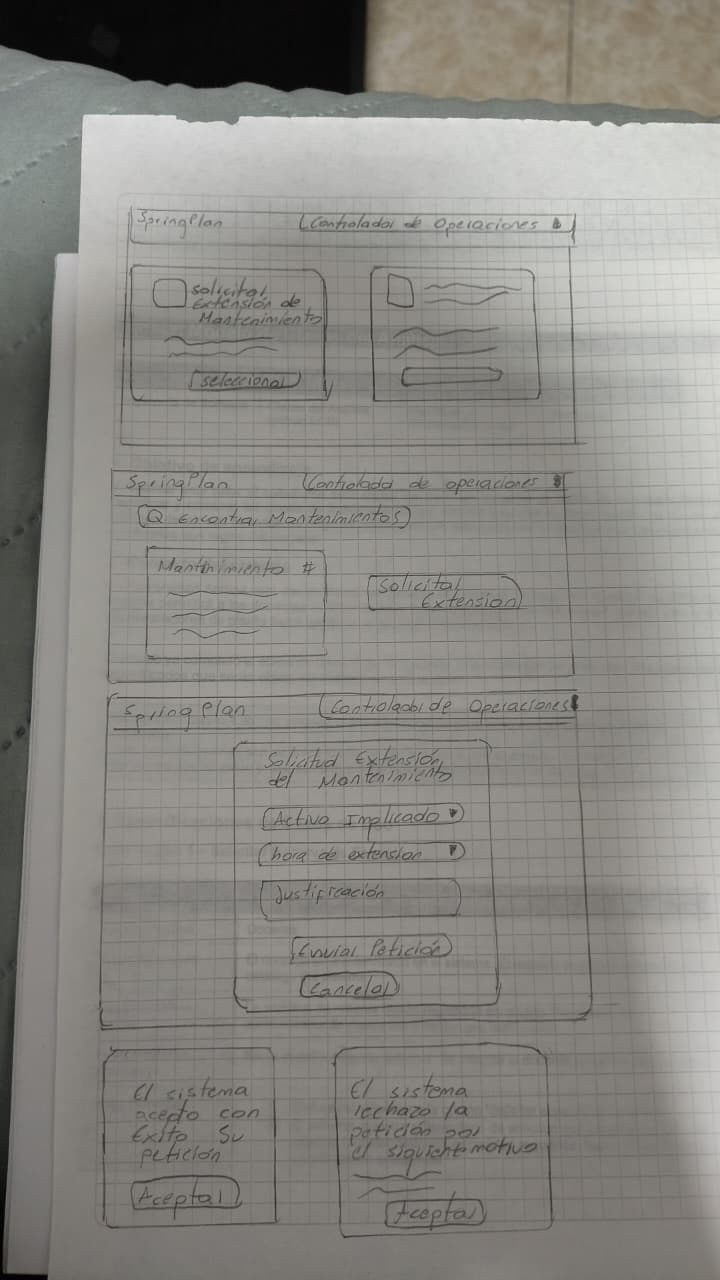 SpringPlan
Controlador de Operaciones
Solicitar
Extensión de
Mantenimiento
seleccionar
SpringPlan
Controlador de operaciones
Q Encontrar Mantenimientos
Mantinimiento #
Solicitar
Extension
Spring Plan
Controlador de Operaciones
Solicitud Extensión
del Mantenimiento
Activo Implicado
hora de extension
Justificación
Enviar Petición
Cancelar
El sistema
acepto con
Exito su
petición
Aceptar
El sistema
rechazo la
petición por
el siguiente motivo
Aceptar